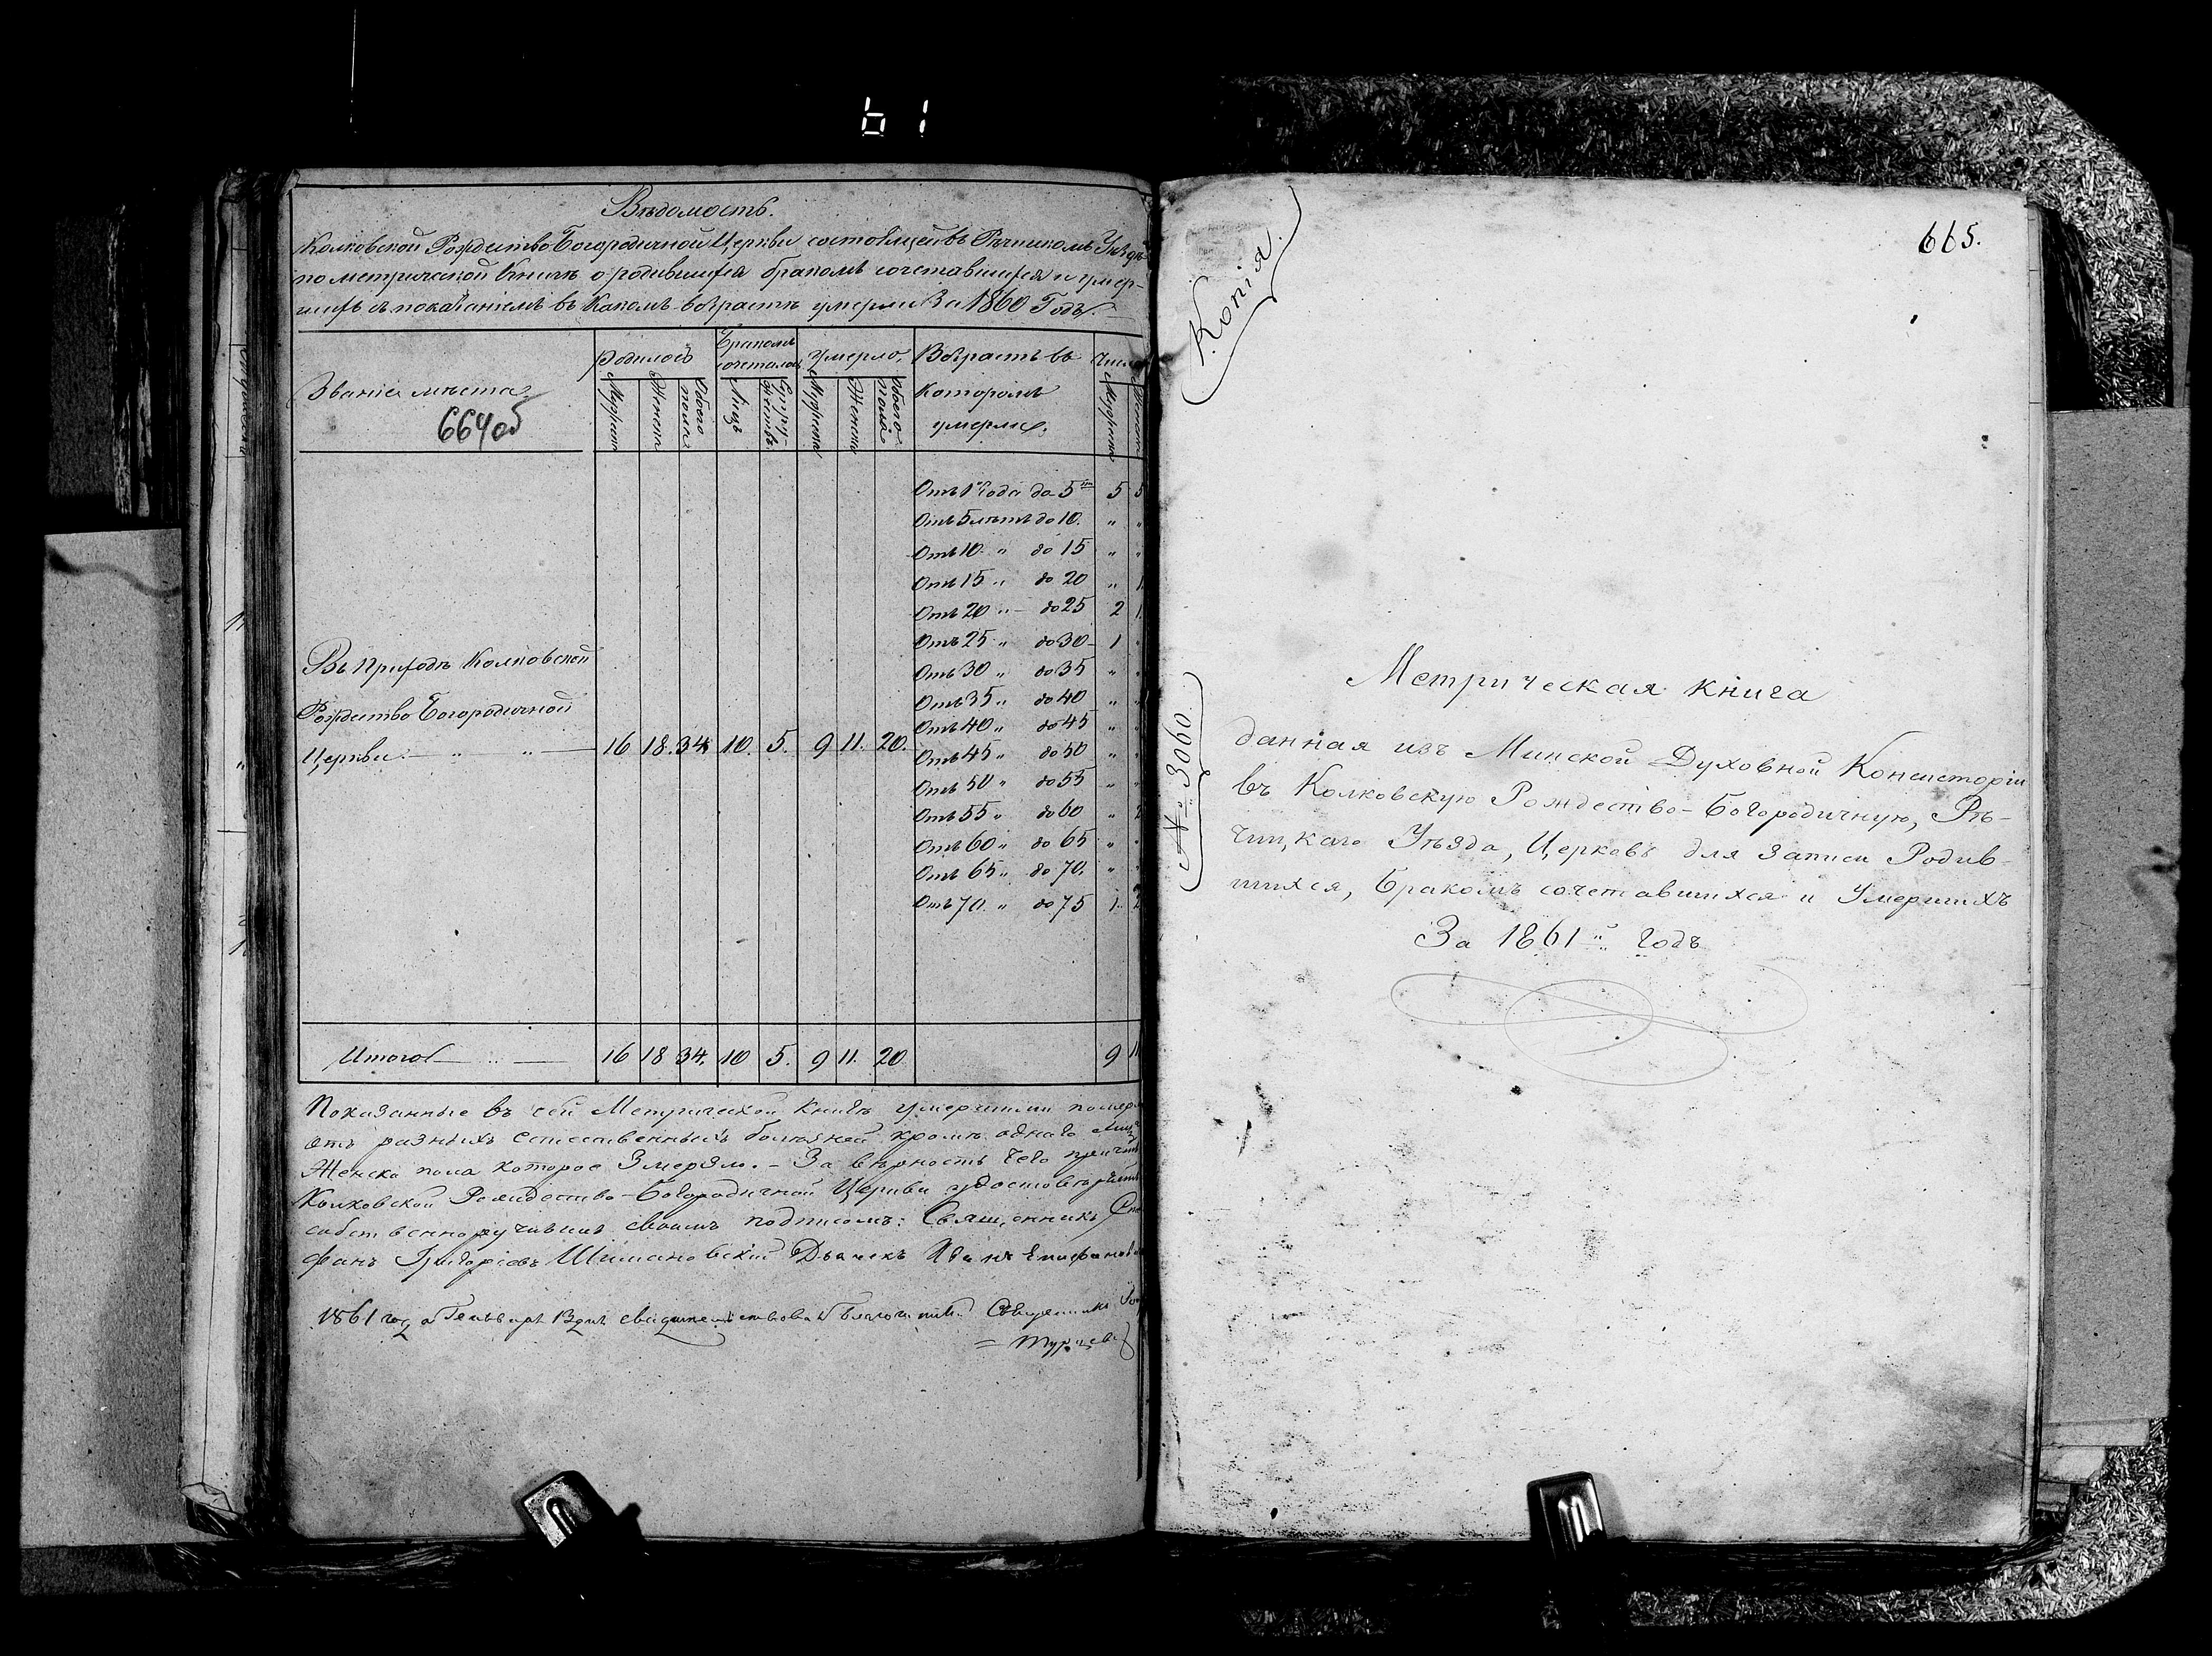 61
Вѣдомость.
Колковской Рождество Богородичной Церкви состоящей въ Рѣчицкомъ Уѣздѣ
по метрической Книгѣ о родившихся бракомъ сочетавшихся и умер-
шихъ съ показаніемъ въ Какомъ возрастѣ умерли За 1860 Годъ.
Званіе мѣста.
664об
Родилось
Бракомъ сочеталось
Умерло.
Возрастъ въ которомъ умерли.
Число
Мужеска Женска Обоего пола Лицъ Супружествъ Мужеска Женска Обоего пола Мужеска Женска
Отъ 1 Года до 5 лѣт 5 5
Отъ 5 лѣтъ до 10. " "
Отъ 10 " до 15 " "
Отъ 15 " до 20 " 1
Отъ 20 " до 25 2 1
Отъ 25 " до 30 1 "
Отъ 30 " до 35 " "
Отъ 35 " до 40 " "
Отъ 40 " до 45 " "
Въ Приходѣ Колковской
Рождество Богородичной
Церкви — " " — 16 18. 34. 10. 5. 9 11. 20.
Отъ 45 " до 50 " "
Отъ 50 " до 55 " "
Отъ 55 " до 60 " 2
Отъ 60 " до 65 " "
Отъ 65 " до 70. " "
Отъ 70. " до 75 1. 2
Итого — " — 16 18 34. 10 5. 9 11. 20 9 11
Показанные въ сей Метрической Книгѣ умершими померли
отъ разныхъ естественныхъ болѣзней кромѣ одного лица
Женска пола которое Змерзло. – За вѣрность чего причтъ
Колковской Рождество-Богородичной Церкви удостовѣряетъ
собственноручнымъ своимъ подписомъ: Священникъ Сте
фанъ Григоріевъ Шимановскій Дьячекъ Иванъ Епифанов
1861 года Генваря 13 дня свидѣтельствовалъ Благочинный Священникъ
= Турцевич
Копія.
665.
№ 3060
Метрическая книга
данная изъ Минской Духовной Консисторіи
въ Колковскую Рождество-Богородичную, Рѣ-
чицкаго Уѣзда, Церковь для записи Родив-
шихся, Бракомъ сочетавшихся и Умершихъ
За 1861й годъ